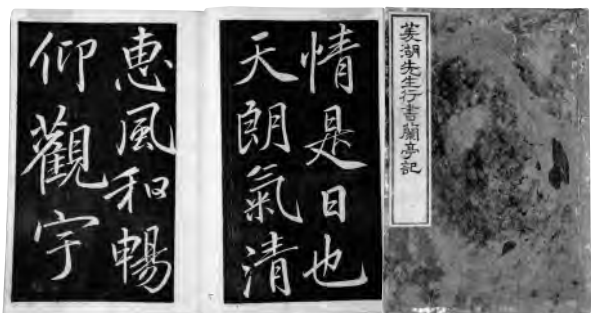 菱湖先生行書蘭亭記
情是日也
天朗氣清
惠風和暢
仰觀宇